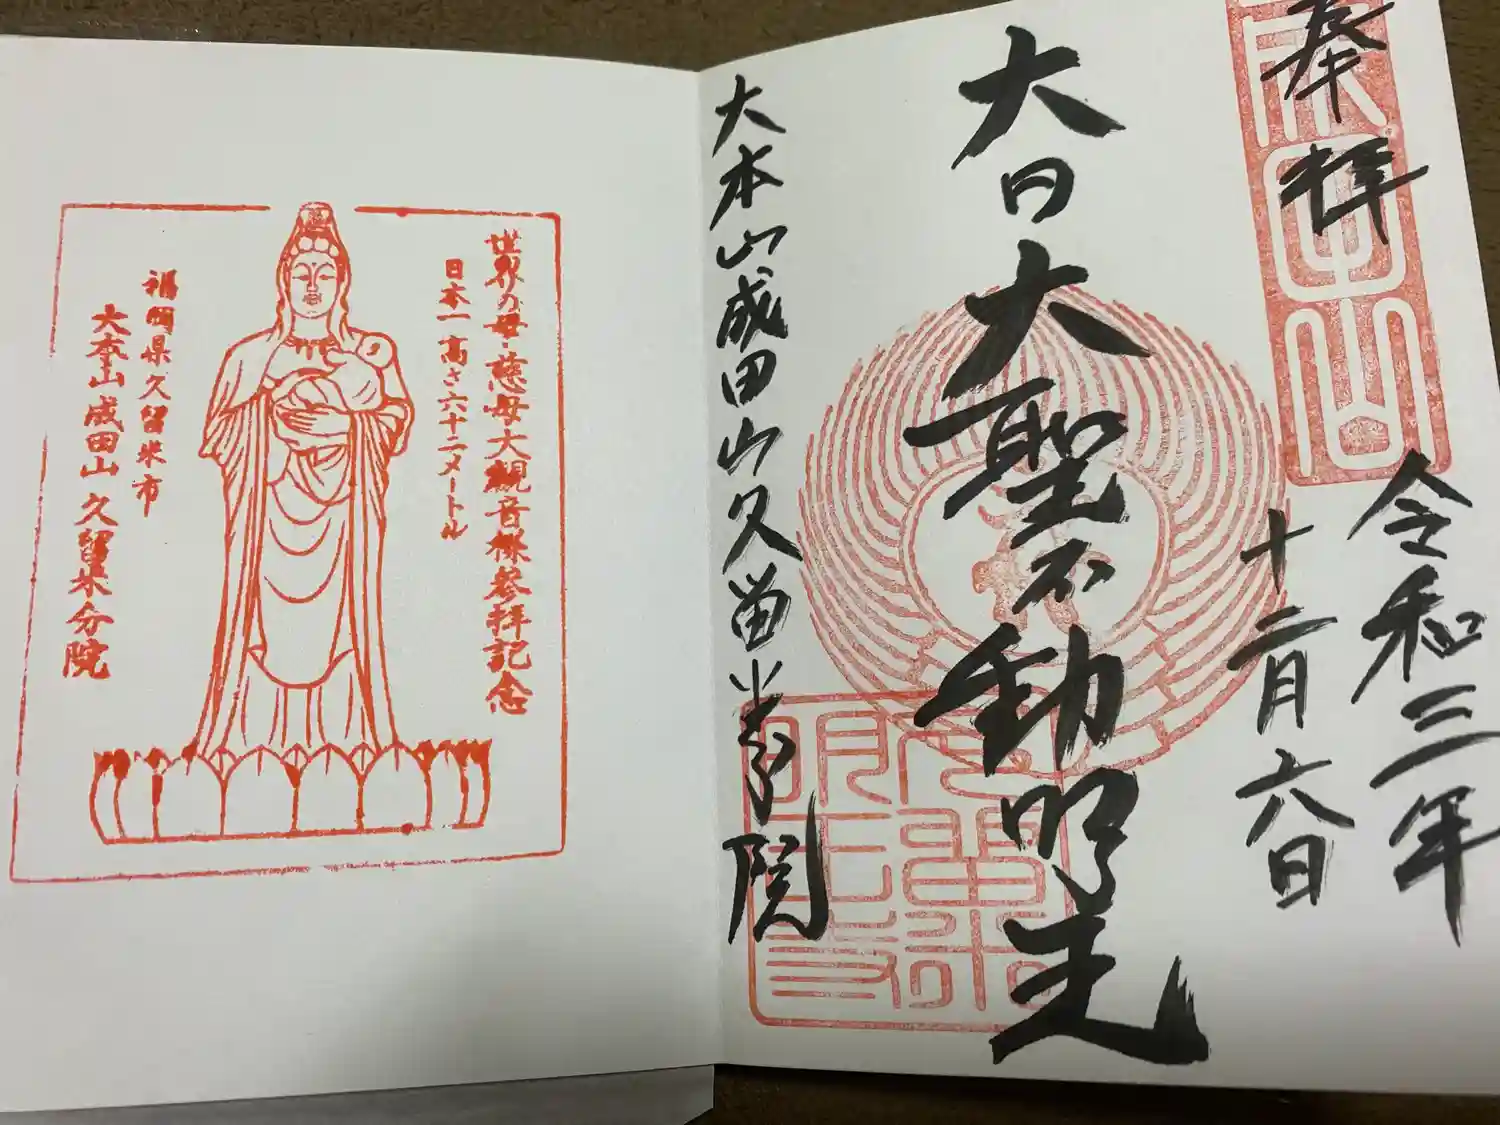 奉拝
成田山
令和三年
十二月六日
大日大聖不動明王
大本山成田山久留米分院
世界の母・慈母大観音様参拝記念
日本一高さ六十二メートル
福岡県久留米市
大本山成田山久留米分院